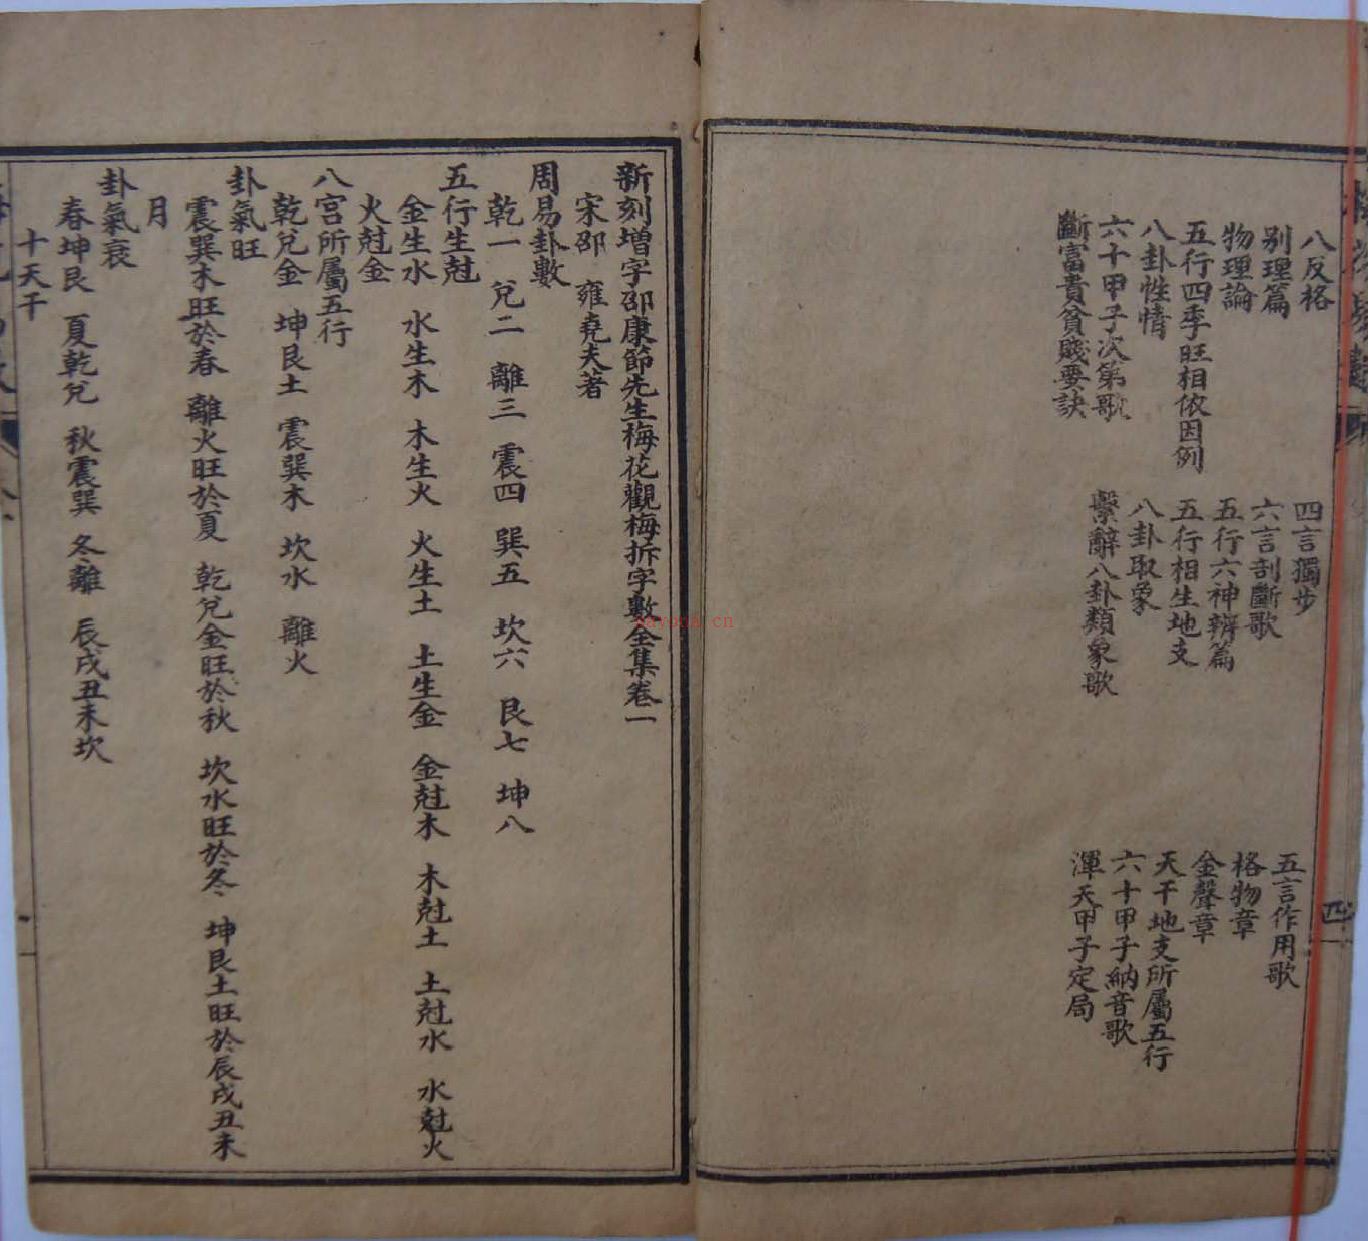 八反格　四言獨步　五言作用歌
別理篇　六言剖斷歌　格物章
物理論　五行六神辨篇　金聲章
五行四季旺相依因例　五行相生地支　天干地支所屬五行
八卦性情　八卦取象　六十甲子納音歌
六十甲子次第歌　繫辭八卦類象歌　渾天甲子定局
斷富貴貧賤要訣
四
新刻增字邵康節先生梅花觀梅拆字數全集卷一
宋邵　雍堯夫著
周易卦數
乾一　兌二　離三　震四　巽五　坎六　艮七　坤八
五行生尅
金生水　水生木　木生火　火生土　土生金　金尅木　木尅土　土尅水　水尅火
火尅金
八宮所屬五行
乾兌金　坤艮土　震巽木　坎水　離火
卦氣旺
震巽木旺於春　離火旺於夏　乾兌金旺於秋　坎水旺於冬　坤艮土旺於辰戌丑未
月
卦氣衰
春坤艮　夏乾兌　秋震巽　冬離　辰戌丑未坎
十天干
nayona.cn